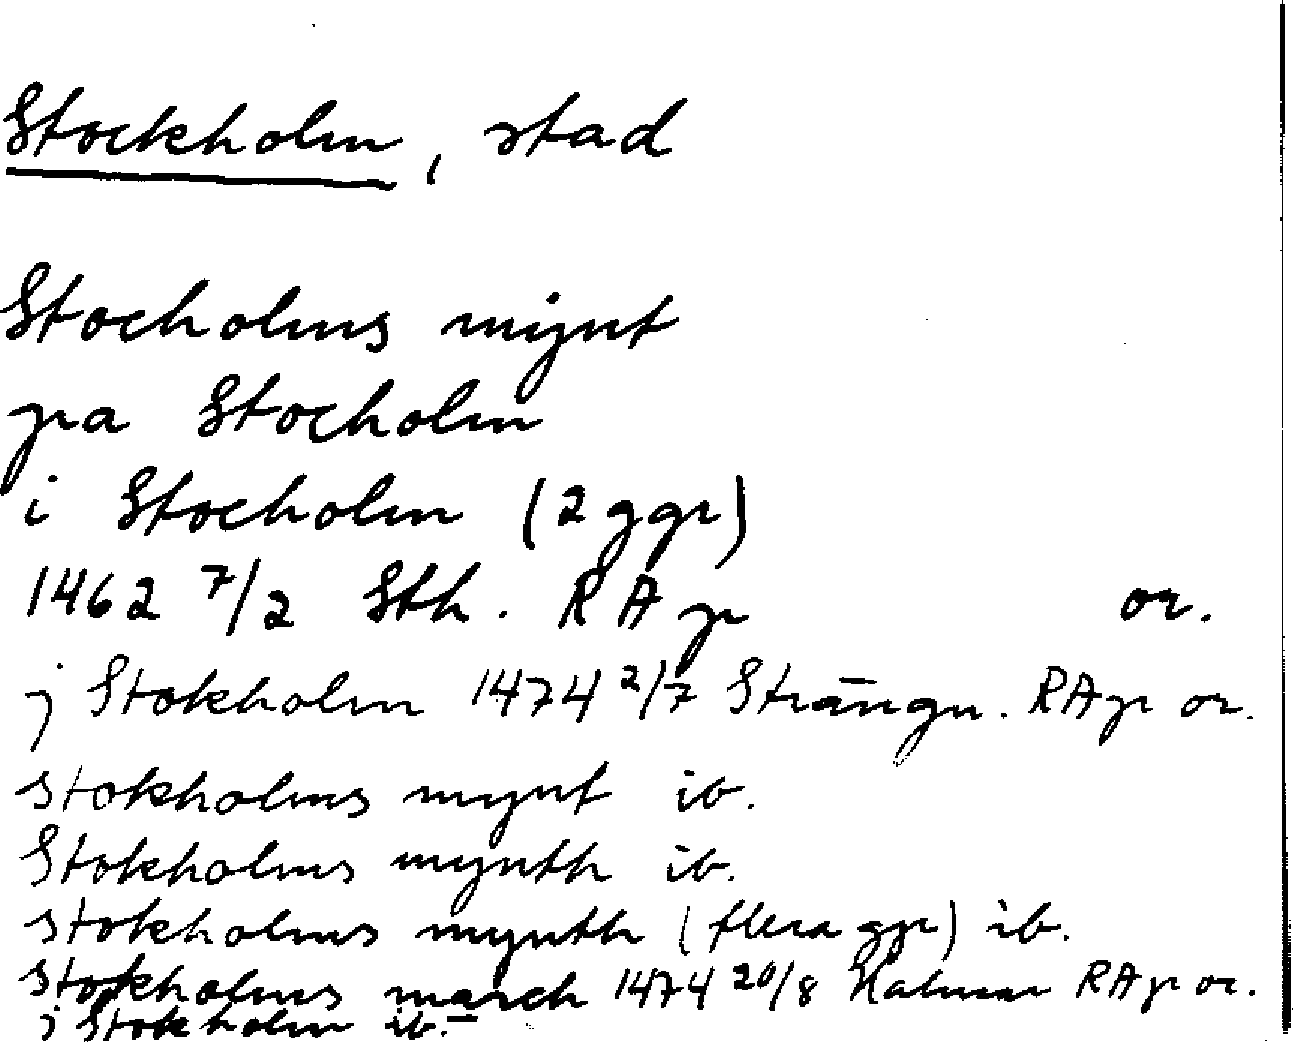 Stockholm, stad
Stocholms mijnt
pa Stocholm
i Stocholm (2 ggr)
1462 7/2 Sth. RAp or.
j Stokholm 1474 2/7 Strängn. RAp or.
stokholms mynt ib.
Stokholms mynth ib.
stokholms mynth (flera ggr) ib.
stokholms march 1474 20/8 Kalmar RAp or.
j Stokholm ib.